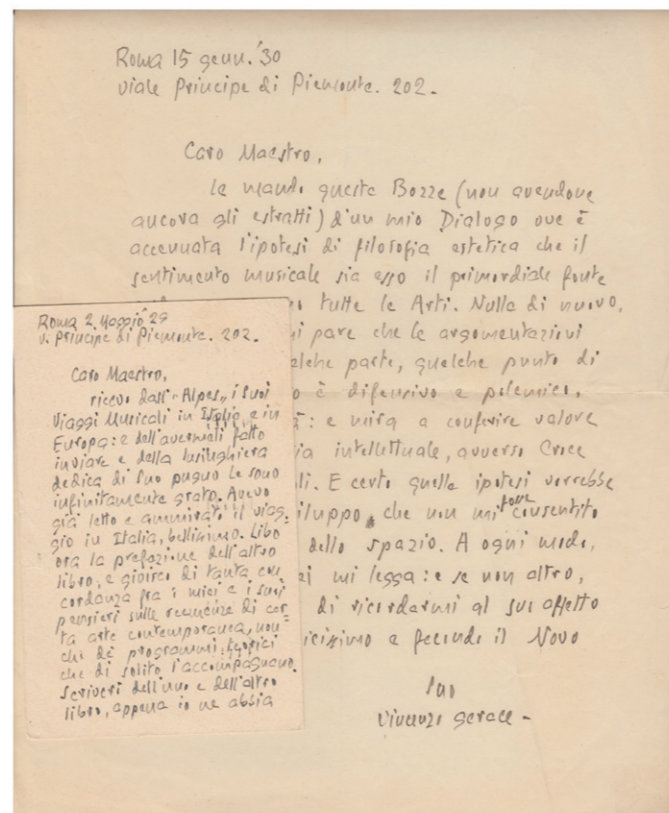 Roma 15 genn. '30
viale Principe di Piemonte. 202.
Caro Maestro,
Le mando queste Bozze (non avendone
ancora gli estratti) d'un mio Dialogo ove è
accennata l'ipotesi di filosofia estetica che il
sentimento musicale sia esso il primordiale fonte
tutte le Arti. Nulla di nuovo,
pare che le argomentazioni
parte, qualche punto di
è difensivo e polemico,
: e mira a conferire valore
intellettuale, avverso Croce
E certo quella ipotesi vorrebbe
che non mi fosse consentito
dello spazio. A ogni modo,
mi legga: e se non altro,
di ricordarmi al suo affetto
e fecondo il Novo
Suo
Vincenzo Gerace -
Roma 2. Maggio '29
v. Principe di Piemonte. 202.
Caro Maestro,
ricevo dall' "Alpes" i suoi
Viaggi Musicali in Italia, e in
Europa: e dell'avermeli fatto
inviare e della lusinghiera
dedica di Suo pugno Le sono
infinitamente grato. Avevo
già letto e ammirato il viag-
gio in Italia, bellissimo. Libo
ora la prefazione dell'altro
libro, e gioisco di tanta con
cordanza fra i miei e i suoi
pensieri sulle di cer-
ta arte contemporanea, non
chè de' programmi teorici
che di solito l'accompagnano.
Scriverò dell'uno e dell'altro
libro, appena io ne abbia